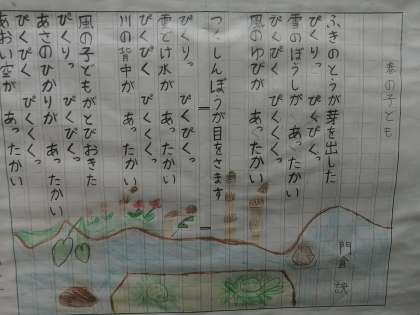 春の子ども
門倉 訣
ふきのとうが芽を出した
ぴくりっ ぴくぴくっ
雪のぼうしが あったかい
ぴくぴく ぴくくくっ
風のゆびが あったかい
つくしんぼうが目をさます
ぴくりっ ぴくぴくっ
雪どけ水が あったかい
ぴくぴく ぴくくくっ
川の背中が あったかい
風の子どもがとびおきた
ぴくりっ ぴくぴくっ
あさのひかりが あったかい
ぴくぴく ぴくくくっ
あおい空が あったかい